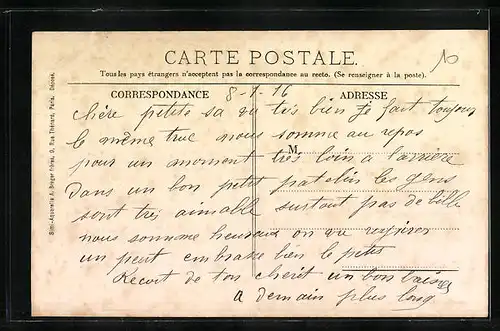 CARTE POSTALE.
Tous les pays étrangers n'acceptent pas la correspondance au recto. (Se renseigner à la poste).
CORRESPONDANCE 8-7-16 ADRESSE
chère petite sa va très bien je fait toujour
le même truc nous somme au repos
M
pour un moment très loin a l'arrière
Dans un bon petit patelin les gens
sont tres aimable surtout pas de bille
nous sommme heureux on va respirer
un peut embrasse bien le petit
Recoit de ton cheret un bon baiser
a demain plus long
Simi-Aquarelle A. Breger frères, 9, Rue Thénard, Paris. Déposé.